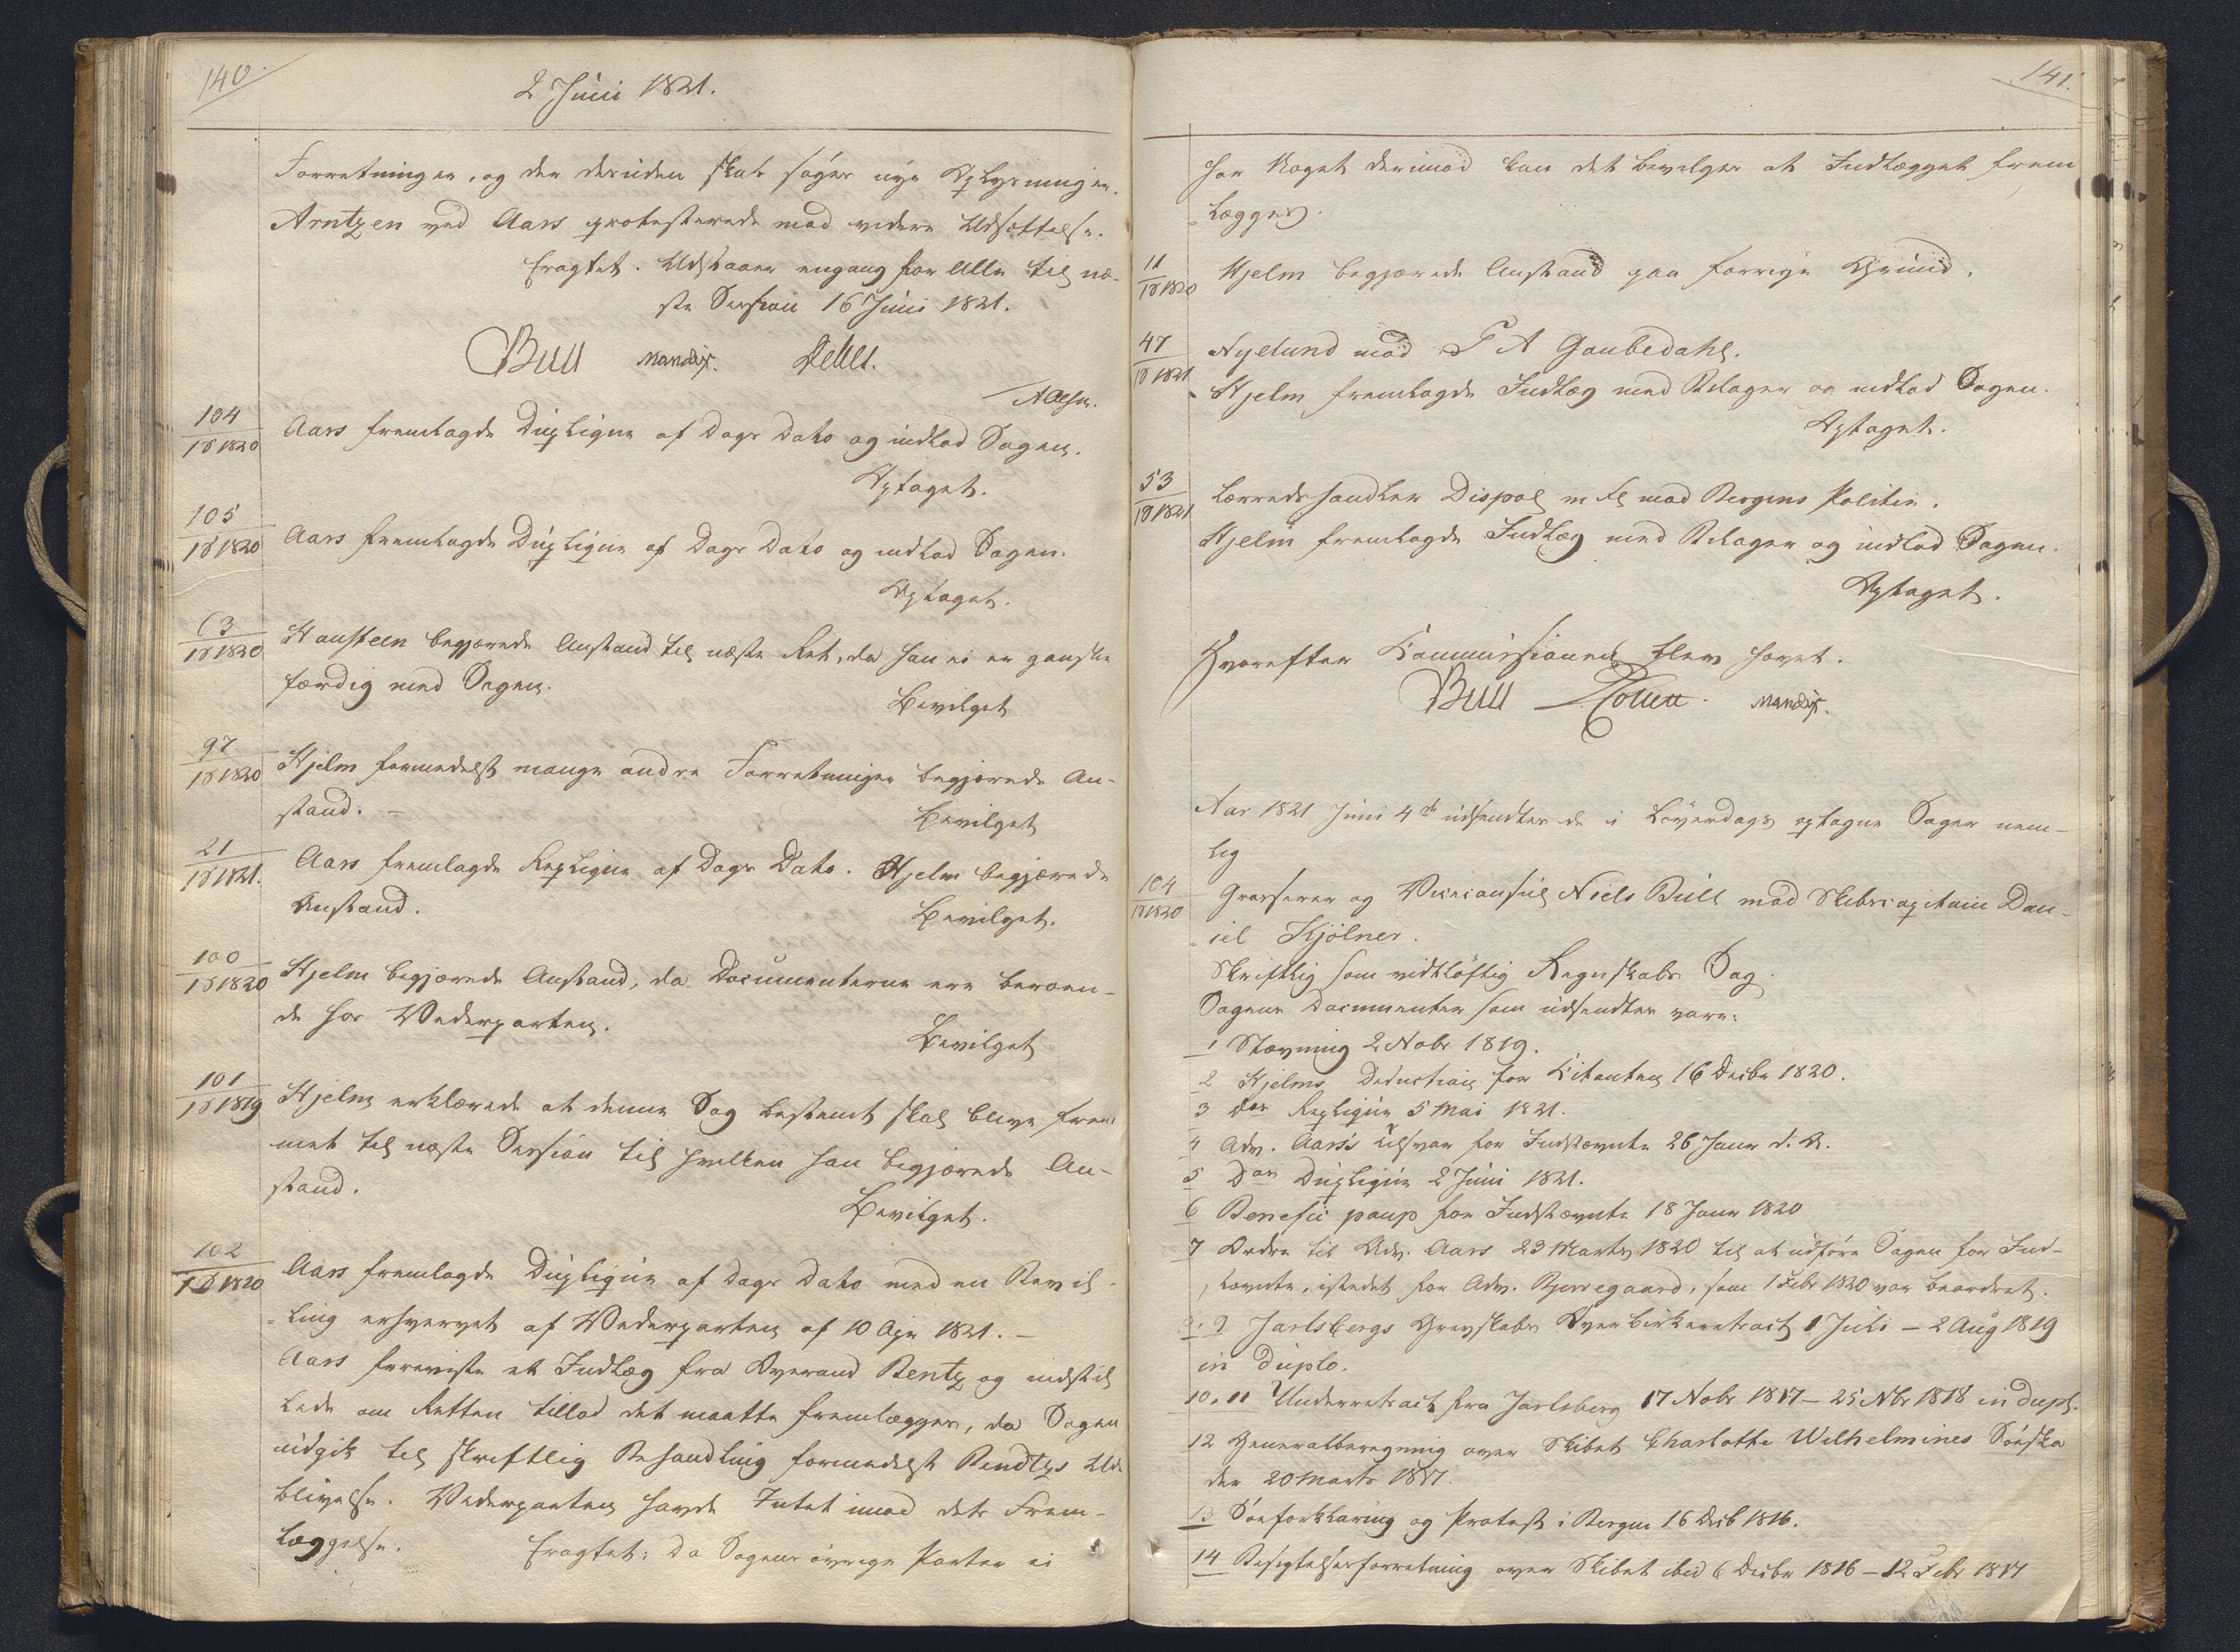 140.
2 Juni 1821.
Forretningen, og der desuden skal søges nye Oplysninger.
Arntzen ved Aars protesterede mod videre Udsættelse.
Eragtet. Udstaaer engang for Alle til næ-
ste Session 16 Juni 1821.
Bull
104
/ 1820 Aars fremlagde Dupliqve af Dags Dato og indlod Sagen.
Optaget.
105
/ 1820 Aars fremlagde Dupliqve af Dags Dato og indlod Sagen.
Optaget.
63
/ 1820 Hansteen begjærede Anstand til næste Ret, da han ei er ganske
færdig med Sagen.
Bevilget
97
/ 1820 Hjelm formedelst mange andre Forretninger begjærede An-
stand. –
Bevilget
21
/ 1821. Aars fremlagde Repliqve af Dags Dato. Hjelm begjærede
Anstand.
Bevilget.
100
/ 1820 Hjelm begjærede Anstand, da Documenterne ere beroen-
de hos Vederparten.
Bevilget
101
/ 1819 Hjelm erklærede at denne Sag bestemt skal blive frem
met til næste Session til hvilken han begjærede An-
stand.
Bevilget.
102
/ 1820 Aars fremlagde Dupliqve af Dags Dato med en Bevil-
ling erhvervet af Vederparten af 10 Apr 1821. –
Aars foreviste et Indlæg fra Qverand Bentz og indstil
lede om Retten tillod det maatte fremlægges, da Sagen
udgik til skriftlig Behandling formedelst Bendtzs Ude
blivelse. Vederparten havde Intet imod dets Frem-
læggelse.
Eragtet: Da Sagens øvrige Parter ei
141.
har Noget derimod kan det bevilges at Indlægget frem
lægges.
11
/ 1820 Hjelm begjærede Anstand paa forrige Grund.
47
/ 1821 Nyelund mod T A Gaubedahl.
Hjelm fremlagde Indlæg med Bilager og indlod Sagen.
Optaget.
53
/ 1821 Lærredshandler Dispol m fl mod Bergens Politie.
Hjelm fremlagde Indlæg med Bilager og indlod Sagen.
Optaget.
Hvorefter Commissionen blev hævet.
Bull
Aar 1821 Juni 4de udsendtes de i Løverdags optagne Sager nem-
lig
104
/ 1820 Grosserer og Viceconsul Niels Bull mod Skibscapitain Dan-
iel Kjølner.
Skriftlig som vidtløftig Regnskabs Sag.
Sagens Documenter som udsendtes vare:
1 Stævning 2 Novbr 1819.
2 Hjelms Deduction for Citanten 16 Decbr 1820.
3 Dos Repliqve 5 Mai 1821.
4 Adv. Aars's Tilsvar for Indstævnte 26 Janr d. A.
5 Dos Dupliqve 2 Juni 1821.
6 Benefic paup for Indstævnte 18 Janr 1820
7 Ordre til Adv. Aars 23 Marts 1820 til at udføre Sagen for Ind-
stævnte, istedet for Adv. Bjerregaard, som 1 Febr 1820 var beordret.
8. 9 Jarlsbergs Grevskabs Overbirkeretsact 1 Juli – 2 Aug 1819
in duplo.
10. 11 Underretsact fra Jarlsberg 17 Novbr 1817 – 25 Nbr 1818 in dupl.
12 Generalberegning over Skibet Charlotte Wilhelmines Søeska
der 20 Marts 1817.
13 Søeforklaring og Protest i Bergen 16 Decb 1816.
14 Besigtelsesforretning over Skibet ibid 6 Decbr 1816 – 12 Febr 1817